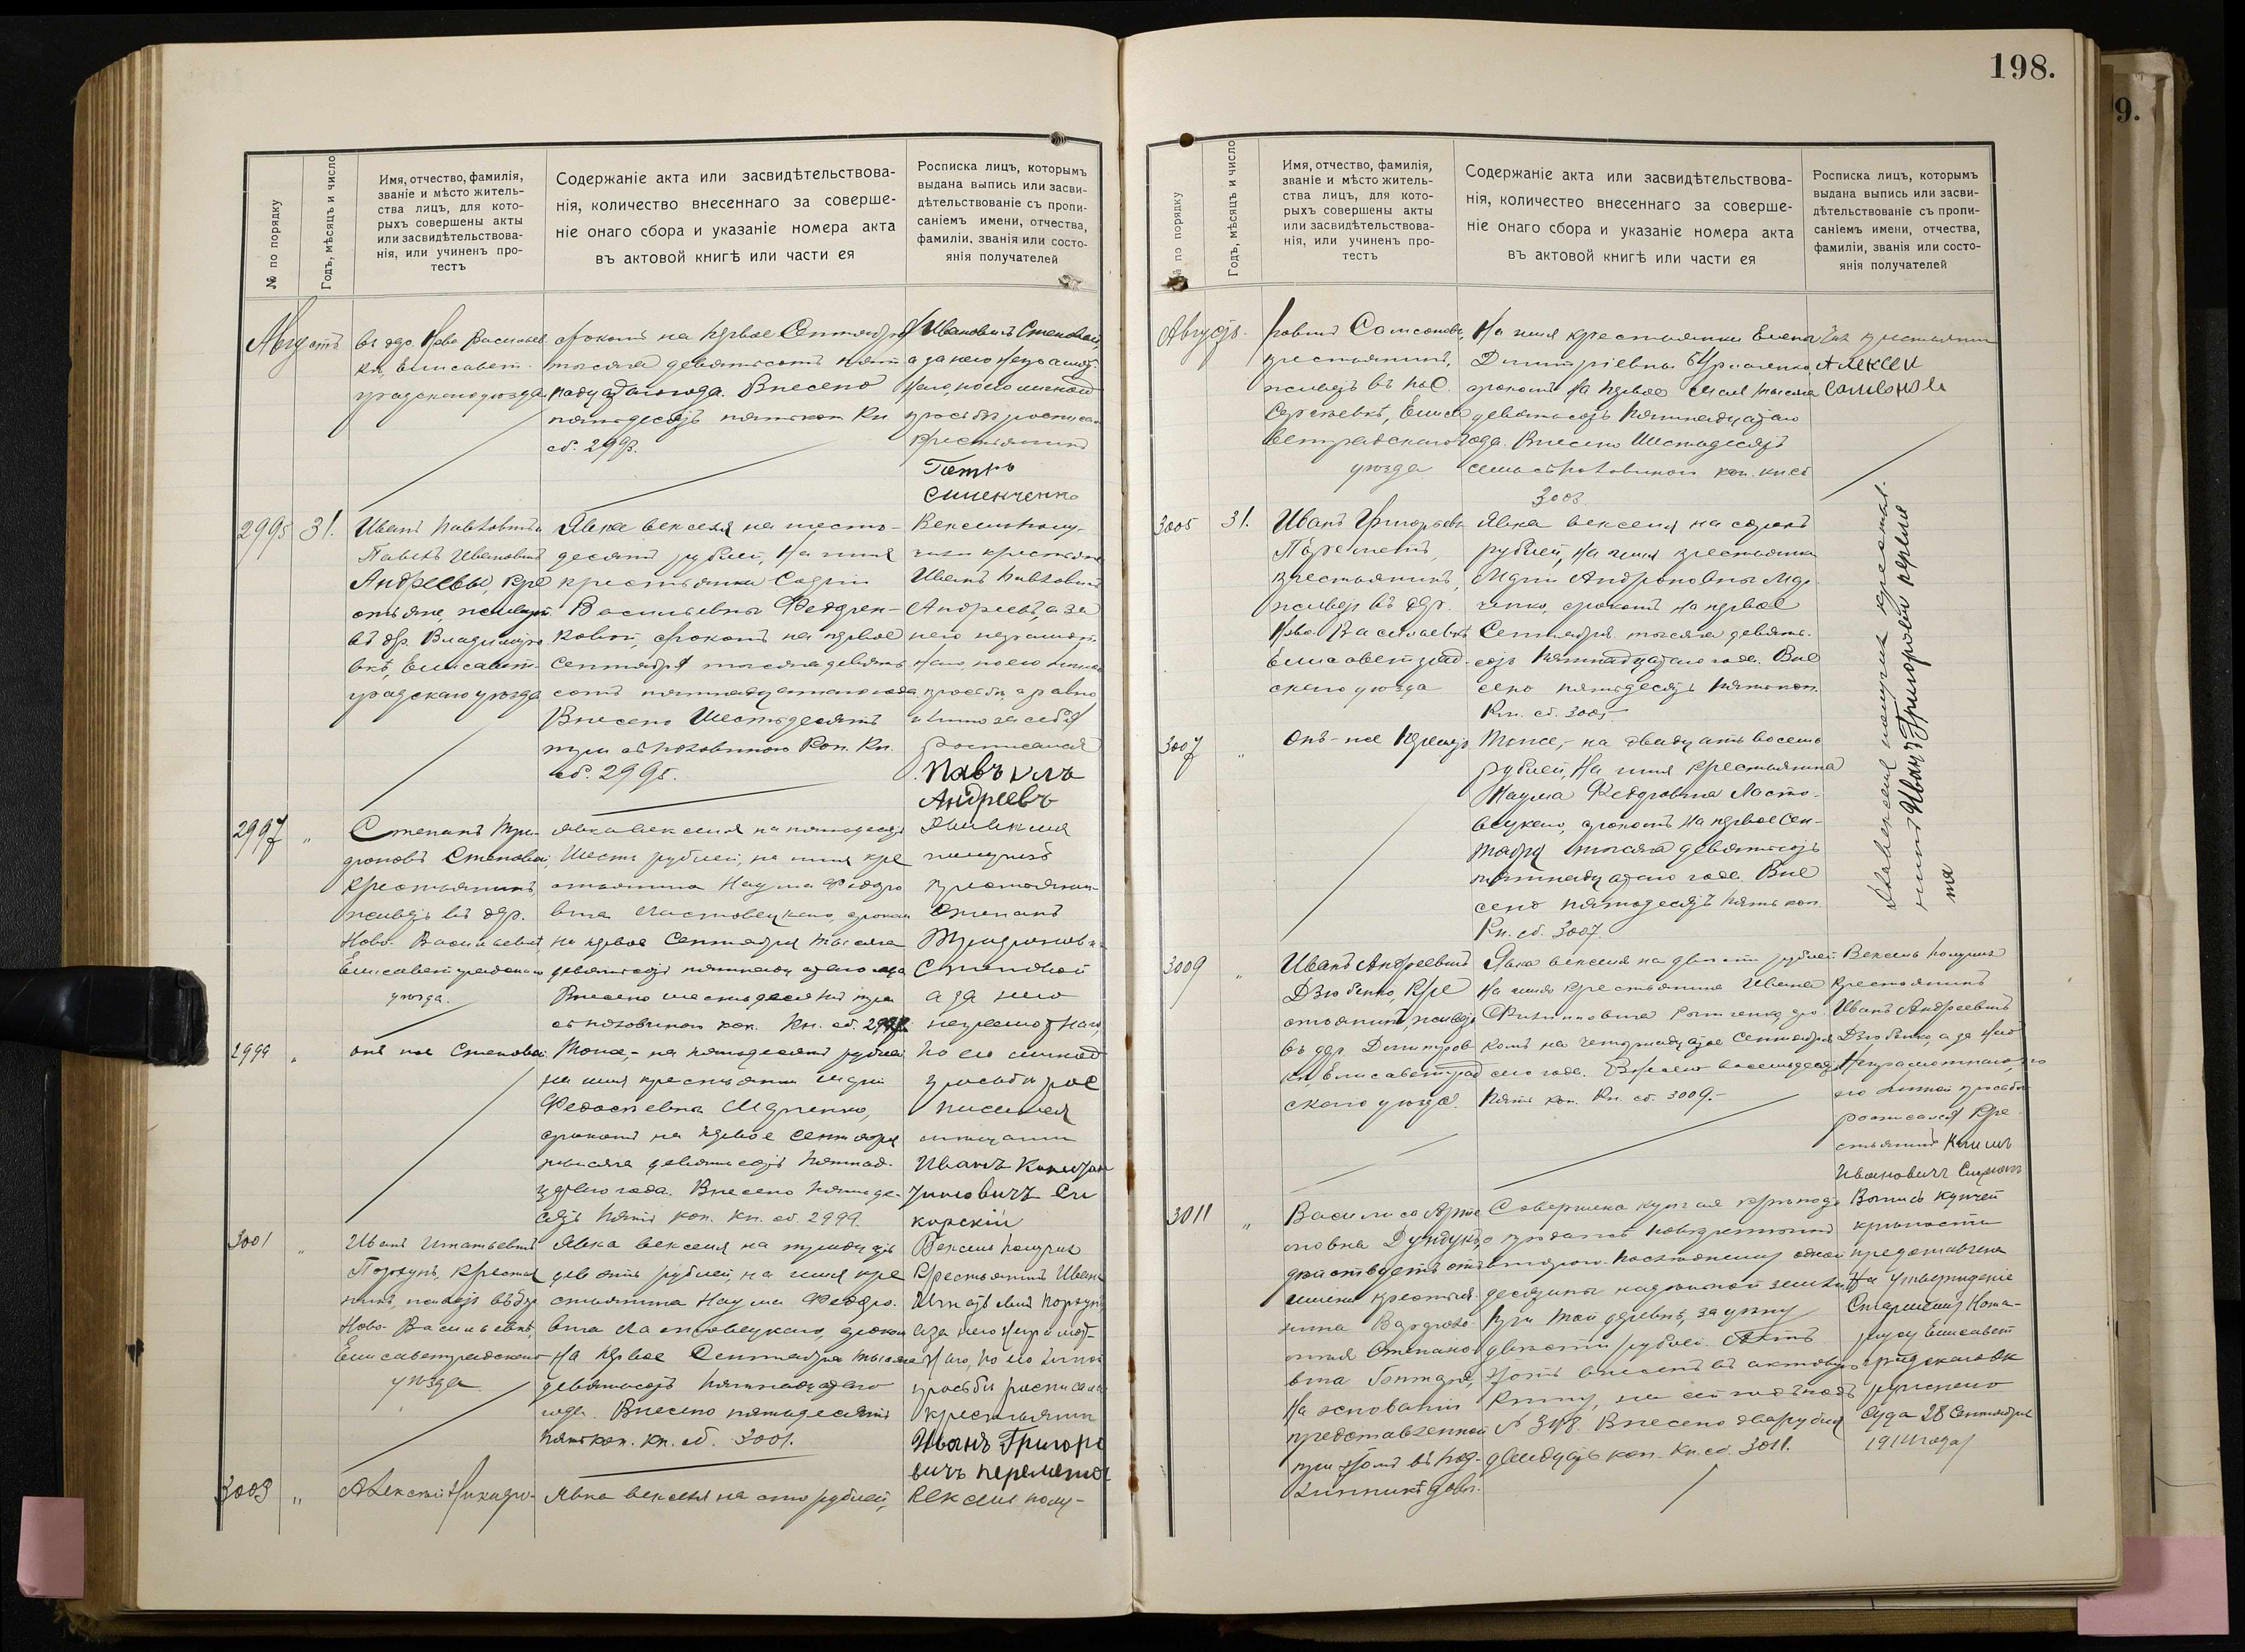 198.
№ по порядку
Годъ, мѣсяцъ и число
Имя, отчество, фамилія,
званіе и мѣсто житель-
ства лицъ, для кото-
рыхъ совершены акты
или засвидѣтельствова-
нія, или учиненъ про-
тестъ
Содержаніе акта или засвидѣтельствова-
нія, количество внесеннаго за соверше-
ніе онаго сбора и указаніе номера акта
въ актовой книгѣ или части ея
Росписка лицъ, которымъ
выдана выпись или засви-
дѣтельствованіе съ пропи-
саніемъ имени, отчества,
фамиліи, званія или состо-
янія получателей
Августъ
въ дер. Ново Васильев
кѣ, Елисавет-
градскаго уѣзда
срокомъ на первое Сентября
тысяча девятьсотъ пят
надцатаго года. Внесено
пятьдесятъ пять коп. Кн.
сб. 2993.
Ивановичъ Степовой
а за него неграмот-
наго, по его личной
просьбѣ росписался
крестьянинъ
Петръ
Сименченко
2995
31.
Иванъ Павловичъ и
Павелъ Ивановичъ
Андреевы, кре
стьяне, живущ.
въ др. Владиміро
вкѣ, Елисавет-
градскаго уѣзда
Явка векселя на шесть-
десятъ рублей, на имя
крестьянки Софіи
Васильевны Феддрен-
ковой, срокомъ на первое
Сентября тысяча девять
сотъ пятнадцатаго года.
Внесено Шестьдесятъ
три съ половиною коп. Кн.
сб. 2995.
Вексель полу-
чили крестьяне
Иванъ Павловичъ
Андреевъ, а за
него неграмот-
наго, по его личной
просьбѣ, а равно
и лично за себя
росписался
Павъилъ
Андреевъ
2997
"
Степанъ Три-
фоновъ Степовой,
крестьянинъ,
живетъ въ др.
Ново-Васильевкѣ,
Елисаветградскаго
уѣзда.
Явка векселя на пятьдесятъ
шесть рублей, на имя кре
стьянина Наума Феддро
вича Ластовецкаго, срокомъ
на первое Сентября тысяча
девятьсотъ пятнадцатаго года
Внесено шестьдесятъ три
съ половиною коп. Кн. сб. 2997.
Два векселя
получилъ
крестьянинъ
Степанъ
Трифоновичъ
Степовой
а за него
неграмотнаго,
по его личной
просьбѣ рос
писался
мѣщанинъ
Иванъ
Си
корскій
2999
"
онъ же Степовой
Тоже,- на пятьдесятъ рублей
на имя крестьянки Маріи
Федосѣевны
срокомъ на первое Сентября
тысяча девятьсотъ пятнад-
цатаго года. Внесено пятьде-
сятъ пять коп. Кн. сб. 2999.
3001
"
Иванъ Игнатьевичъ
крестья
нинъ, живетъ въ др.
Ново-Васильевкѣ,
Елисаветградскаго
уѣзда
Явка векселя на тридцать
девять рублей, на имя кре
стьянина Наума Феддро-
вича Ластовецкаго, срокомъ
на первое Сентября тысяча
девятьсотъ пятнадцатаго
года. Внесено пятьдесятъ
пять коп. Кн. сб. 3001.
Вексель получилъ
крестьянинъ Иванъ
Игнатьевичъ
а за него неграмот-
наго, по его личной
просьбѣ росписался
крестьянинъ
Иванъ Григорь
вичъ переметъ
3003
"
Алексѣй Никифо-
Явка векселя на сто рублей,
Вексель полу-
№ по порядку
Годъ, мѣсяцъ и число
Имя, отчество, фамилія,
званіе и мѣсто житель-
ства лицъ, для кото-
рыхъ совершены акты
или засвидѣтельствова-
нія, или учиненъ про-
тестъ
Содержаніе акта или засвидѣтельствова-
нія, количество внесеннаго за соверше-
ніе онаго сбора и указаніе номера акта
въ актовой книгѣ или части ея
Росписка лицъ, которымъ
выдана выпись или засви-
дѣтельствованіе съ пропи-
саніемъ имени, отчества,
фамиліи, званія или состо-
янія получателей
Августъ.
ровичъ Самсоновъ,
крестьянинъ,
живетъ въ пос.
Сергѣевкѣ, Елиса
ветградскаго
уѣзда
На имя крестьянки Елены
Димитріевны
срокомъ на первое Мая тысяча
девятьсотъ пятнадцатаго
года. Внесено Шестьдесятъ
семь съ половиною коп. Кн. сб.
3003
чилъ крестьянинъ
Алексей
Самсоновъ
3005
31.
Иванъ Григорьевъ
Переметъ,
крестьянинъ,
живетъ въ дер.
Ново-Васильевкѣ
Елисаветград-
скаго уѣзда
Явка векселя на сорокъ
рублей, на имя крестьянки
Маріи Андроновны
срокомъ на первое
Сентября тысяча девять-
сотъ пятнадцатаго года. Вне
сено пятьдесятъ пять коп.
Кн. сб. 3005
Два векселя получилъ крестья-
нинъ Иванъ Григорьевъ переме
тъ
3007
"
Онъ-же Переметъ
Тоже,- на двадцать восемь
рублей, на имя крестьянина
Наума Феддровича Ласто-
вецкаго, срокомъ на первое Сен-
тября тысяча девятьсотъ
пятнадцатаго года. Вне
сено пятьдесятъ пять коп.
Кн. сб. 3007.
3009
"
Иванъ Андреевичъ
Дзюбенко, кре
стьянинъ, живетъ
въ дер. Димитров
кѣ, Елисаветград
скаго уѣзда.
Явка векселя на двѣсти рублей
на имя крестьянина Ивана
Филипповича сро-
комъ на четырнадцатое Сентября
сего года. Внесено восемьдесятъ
пять коп. Кн. сб. 3009.-
Вексель получилъ
крестьянинъ
Иванъ Андреевичъ
Дзюбенко, а за него
неграмотнаго, по
его личной просьбѣ
росписался кре-
стьянинъ
Ивановичъ
3011
"
Василиса
дѣйствуетъ отъ
имени крестья-
нина
Степано-
вича
на основаніи
представленной
при этомъ въ под-
линникѣ довѣр.
Совершена купчая крѣпость
о продажѣ
одной
десятины надѣльной земли
при той деревнѣ, за цѣну
двѣсти рублей. Актъ
этотъ внесенъ въ актовую
книгу, на сей годъ подъ
№ 318. Внесено два рубля
двадцать коп. Кн. сб. 3011.
Выпись купчей
крѣпости
представлена
на утвержденіе
Старшему Нота-
ріусу Елисавет
градскаго Ок
ружнаго
Суда 28 Сентября
1914 года